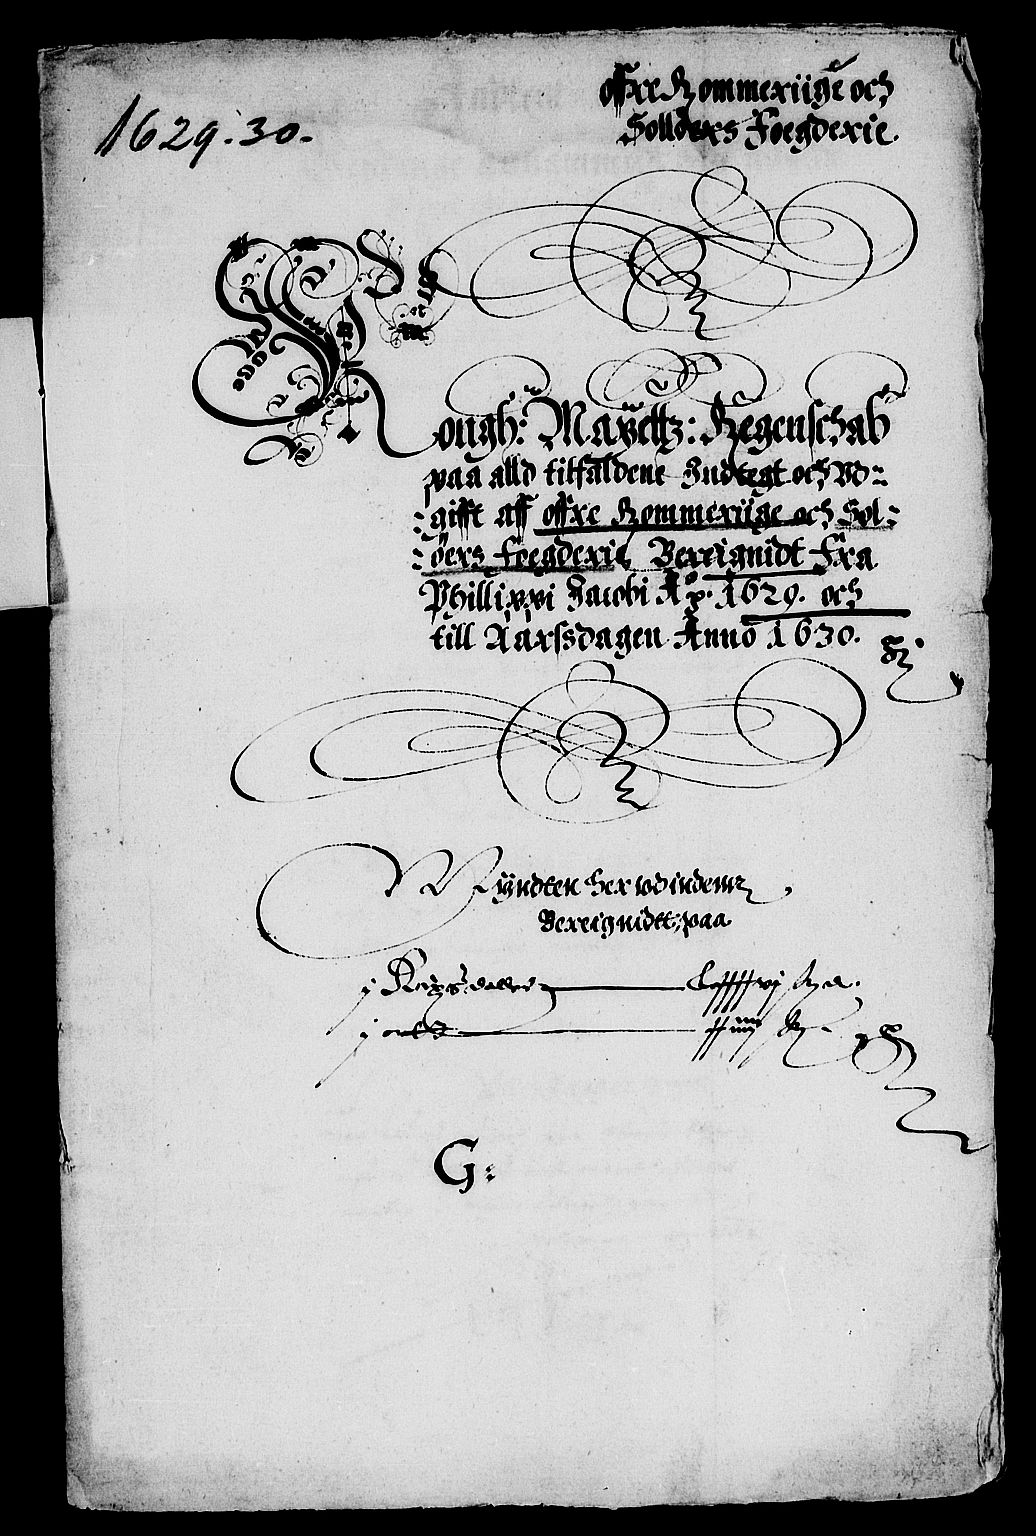 offre Rommeriige och
Solløers Foegderie.
1629.30.
Kongh: Mayettz: Regenschab
paa alld tilfaldene Indtegt och Vd=
:gifft aff offre Rommeriige och Sol=
:øers Foegderie, Bereignidt Fra
Phillippi Jacobi Aº: 1629. och
till Aarssdagen Anno 1630.
Myndten her vdinden
Bereignidt, paa
j Rixsdaler
j ortt
G: